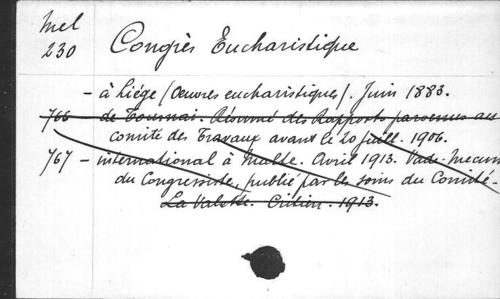 Mel
230
Congrès Eucharistique
- à Liége (Oeuvres eucharistiques). Juin 1883.
766 - de Tournai. Résumé des Rapports parvenus au
comité des Travaux avant le 20 Juill. 1906.
767 - international à Malte. Avril 1913. Vade-Mecum
du Congressiste, publié par les soins du Comité-
La Valette. 1913.